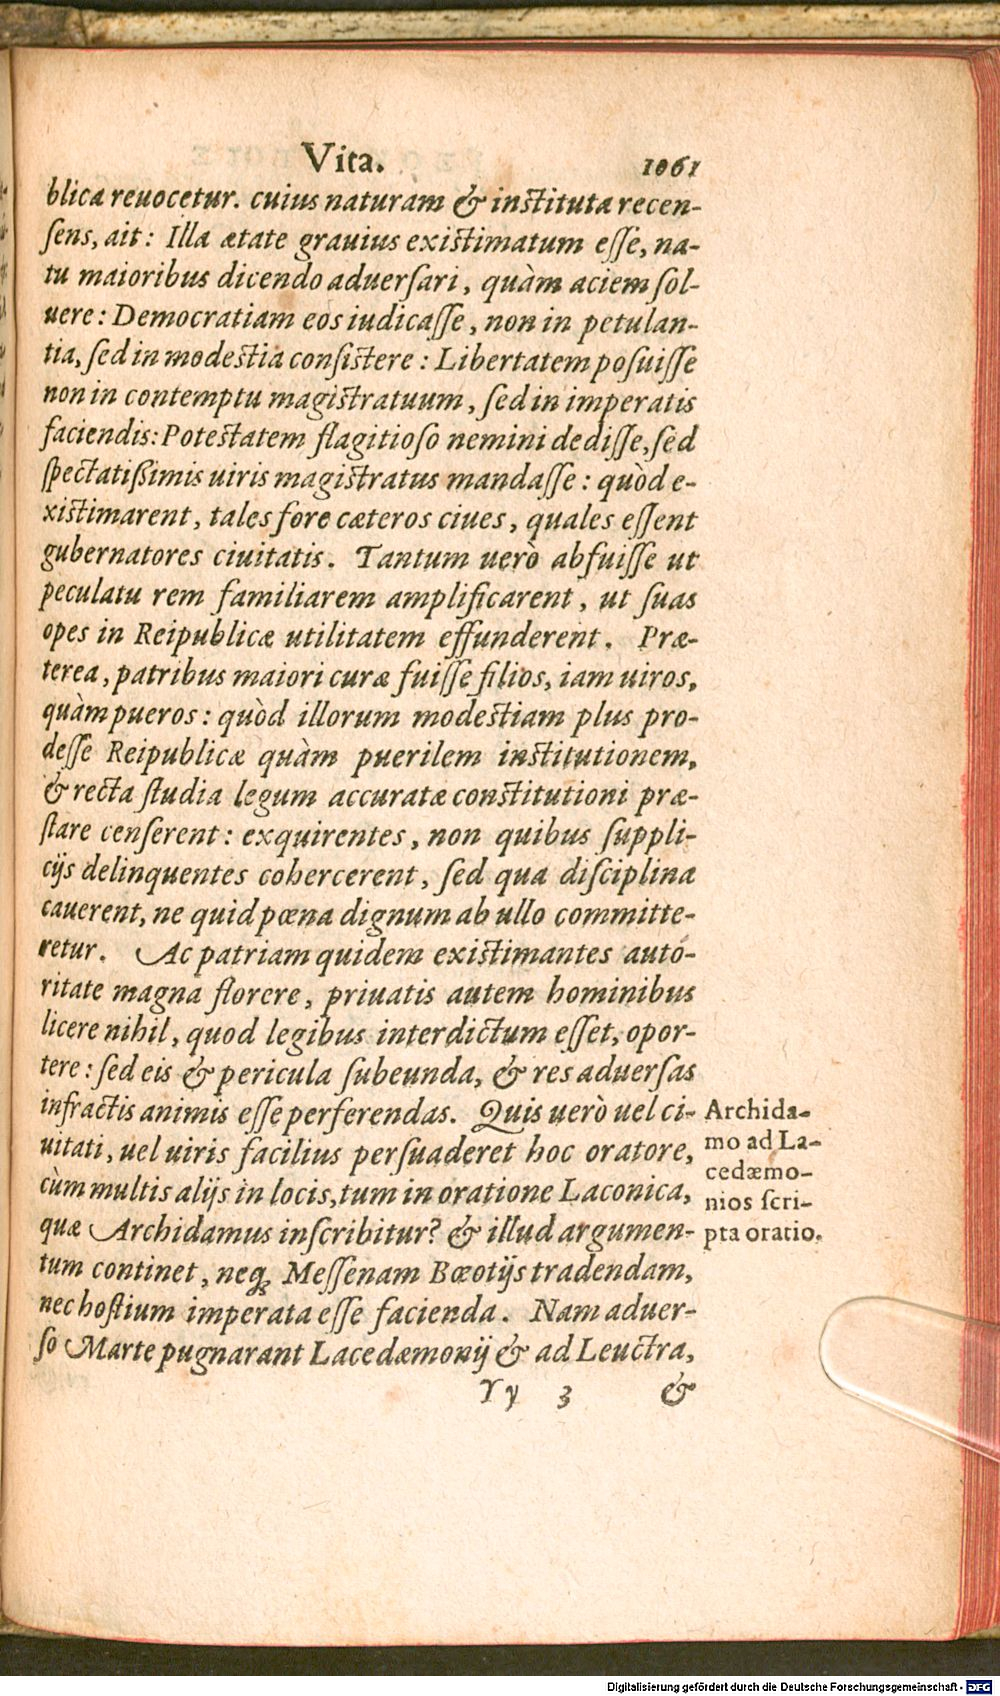 Vita. 1061
blica reuocetur. cuius naturam & instituta recen-
sens, ait: Illa ætate grauius existimatum esse, na-
tu maioribus dicendo aduersari, quàm aciem sol-
uere: Democratiam eos iudicasse, non in petulan-
tia, sed in modestia consistere: Libertatem posuisse
non in contemptu magistratuum, sed in imperatis
faciendis: Potestatem flagitioso nemini dedisse, sed
spectatißimis uiris magistratus mandasse: quòd e-
xistimarent, tales fore cæteros ciues, quales essent
gubernatores ciuitatis. Tantum uerò abfuisse ut
peculatu rem familiarem amplificarent, ut suas
opes in Reipublicæ utilitatem effunderent. Præ-
terea, patribus maiori curæ fuisse filios, iam uiros,
quàm pueros: quòd illorum modestiam plus pro-
desse Reipublicæ quàm puerilem institutionem,
& recta studia legum accuratæ constitutioni præ-
stare censerent: exquirentes, non quibus suppli-
cijs delinquentes cohercerent, sed qua disciplina
cauerent, ne quid pœna dignum ab ullo committe-
retur. Ac patriam quidem existimantes auto-
ritate magna florere, priuatis autem hominibus
licere nihil, quod legibus interdictum esset, opor-
tere: sed eis & pericula subeunda, & res aduersas
infractis animis esse perferendas. Quis uerò uel ci-
uitati, uel uiris facilius persuaderet hoc oratore,
cùm multis alijs in locis, tum in oratione Laconica,
quæ Archidamus inscribitur? & illud argumen-
tum continet, neq; Messenam Bœotijs tradendam,
nec hostium imperata esse facienda. Nam aduer-
so Marte pugnarant Lacedæmonij & ad Leuctra,
Yy 3 &
Archida-
mo ad La-
cedæmo-
nios scri-
pta oratio.
Digitalisierung gefördert durch die Deutsche Forschungsgemeinschaft - DFG